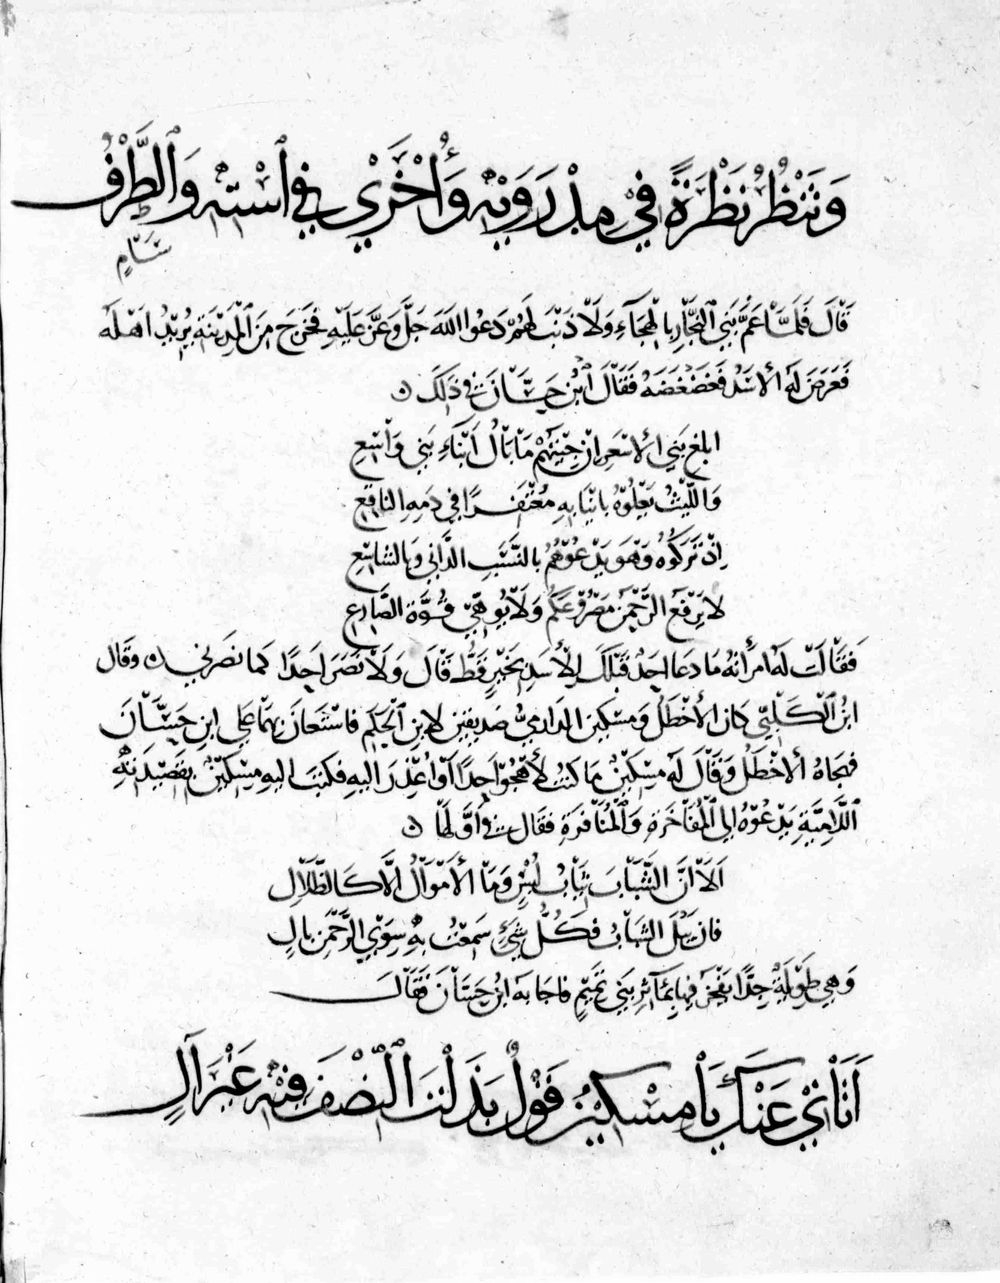 وَتَنْظُرُ نَظْرَةً فِي مِذْرَوَيْهِ وَأُخْرَي فِي ٱسْتِهِ وَٱلطَّرْفُ
سَامِ
قَالَ فَلمَّا عَمَّ بَنِي ٱلنَّجَّارِ بِالْهِجَآءِ وَلَا ذَنْبَ لَهُمْ دَعَوُا اللهَ جَلَّ وَعَزَّ عَلَيْهِ فَخَرَجَ مِنَ ٱلْمَدِيْنَةِ يُرِيْدُ اَهْلَهُ
فَعَرَضَ لَهُ الْاَسَدُ فَخَضْغَضَهُ فَقَالَ ٱبْنُ حَسَّانَ فِي ذَلِكَ
ابلغ بَنِي الْاَسْعَرِ ان جِئْتَهُمْ مَا بَالُ اَبْنَآءِ بَنِي وَاسِعِ
وَاللَّيْثُ يَعْلُوْهُ بِانْيَابِهِ مُعْتَفَرًا فِي دَمِهِ النَاقِعِ
اِذْ تَرَكُوْهُ وَهْوَ يَدْعُوْهُمْ بِالنَّسَبِ الدَّانِي وَبِالشَاسِعِ
لَا يَرْفَعُ الرَّحْمَنُ مَصْرُوْعَكُمْ وَلَا يُوهِّيْ قُوَّةَ الصَّارِعِ
فَقَالَتْ لَهُ امرَأَتُهُ مَا دَعَا اَحَدٌ قَبْلَكَ لِلْأَسَدِ بِخَيْرٍ قَطُّ قَالَ وَلَا نَصَرَ اَحَدًا كَما نَصَرَنِي وَقَال
ابْنُ ٱلْكَلْبِيّ كَانَ الْأَخْطَلُ وَمِسْكِينٌ الدَارِمِيُّ صَدِيقَيْنِ لِابنِ ٱلْحَكَمِ فَاسْتَعَانَ بِهِمَا عَلَي ابنِ حَسَّانَ
فَهَجَاهُ الْاَخْطَلُ وَقَالَ لَهُ مِسْكِيْنٌ مَا كنتُ لأَهْجُوَ اَحَدًا اَوْ اُعْذِرَ اليهِ فكتبَ اليهِ مِسْكِيْنٌ بِقَصِيْدَتِهِ
اللَّامِيَّةِ يَدْعُوْهُ الي ٱلْمُفَاخَرةِ وَٱلْمُنَافَرةِ فقال في أوَّلها
اَلَا اَنَّ الشَّبَابَ ثِيَابُ لُبْسٍ وَمَا الْأَمْوَالُ اِلَّا كَالظِّلَالِ
فان يَبْلَ الشَبَابُ فَكُلُّ شَيْءٍ سَمِعْتُ بِهِ سِوَي الرَّحْمَنِ بالِ
وَهِي طَوِيْلَةٌ جِدًّا يَفْخَرُ فِيها بِمَآثِرِ بَنِي تَمِيْمٍ فَاجَابَهُ ابْنُ حَسَّانَ فَقَالَ
اَتَانِي عَنْكَ يَا مِسْكِيْنُ قَوْلٌ بَذَلْتَ ٱلنِّصْفَ فِيْهِ غَيْرَ آلِ